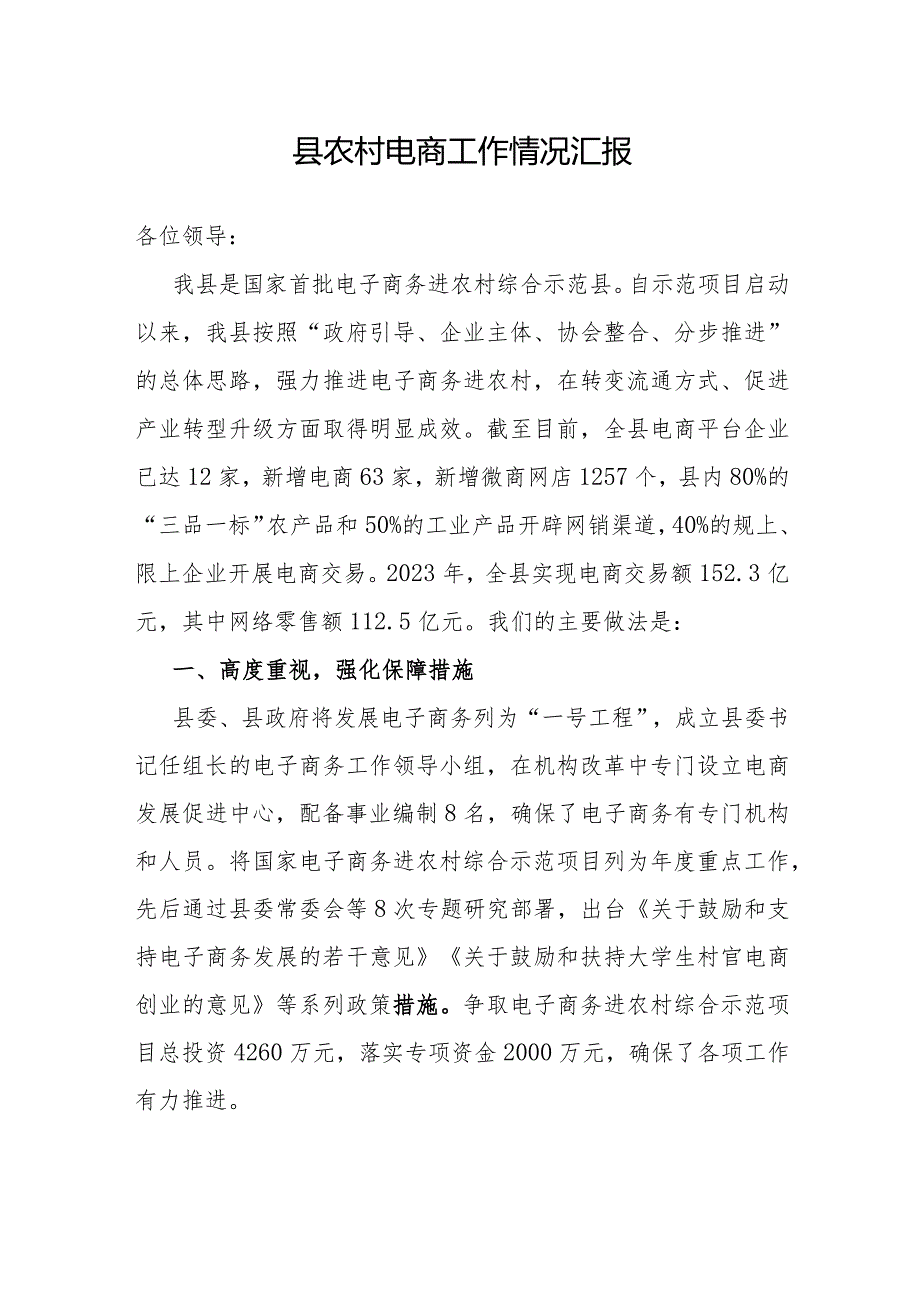 县农村电商工作情况汇报
各位领导：
我县是国家首批电子商务进农村综合示范县。自示范项目启动
以来，我县按照“政府引导、企业主体、协会整合、分步推进”
的总体思路，强力推进电子商务进农村，在转变流通方式、促进
产业转型升级方面取得明显成效。截至目前，全县电商平台企业
已达12家，新增电商63家，新增微商网店1257个，县内80%的
“三品一标”农产品和50%的工业产品开辟网销渠道，40%的规上、
限上企业开展电商交易。2023年，全县实现电商交易额152.3亿
元，其中网络零售额112.5亿元。我们的主要做法是：
一、高度重视，强化保障措施
县委、县政府将发展电子商务列为“一号工程”，成立县委书
记任组长的电子商务工作领导小组，在机构改革中专门设立电商
发展促进中心，配备事业编制8名，确保了电子商务有专门机构
和人员。将国家电子商务进农村综合示范项目列为年度重点工作，
先后通过县委常委会等8次专题研究部署，出台《关于鼓励和支
持电子商务发展的若干意见》《关于鼓励和扶持大学生村官电商
创业的意见》等系列政策措施。争取电子商务进农村综合示范项
目总投资4260万元，落实专项资金2000万元，确保了各项工作
有力推进。